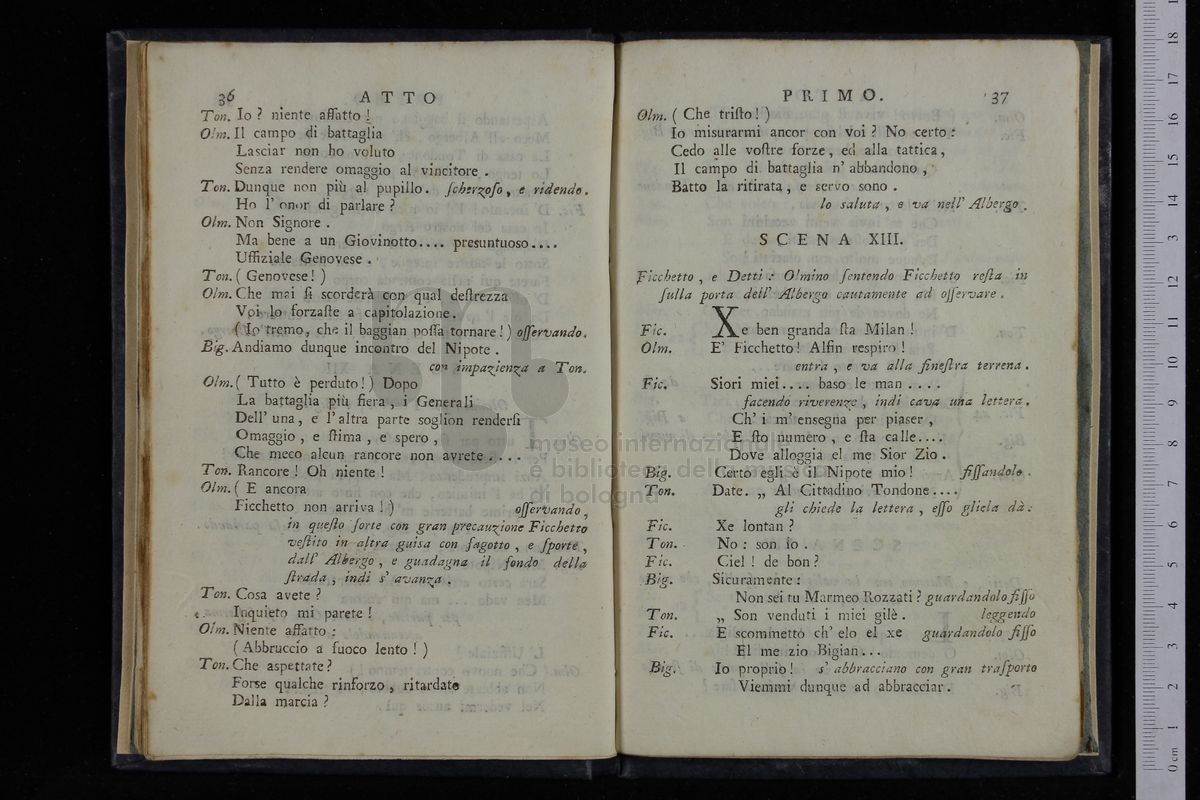 36 ATTO
Ton. Io ? niente affatto !
Olm. Il campo di battaglia
Lasciar non ho voluto
Senza rendere omaggio al vincitore .
Ton. Dunque non più al pupillo . ſcherzoſo , e ridendo .
Ho l' onor di parlare ?
Olm. Non Signore .
Ma bene a un Giovinotto.... presuntuoso....
Uffiziale Genovese .
Ton. ( Genovese ! )
Olm. Che mai ſi scorderà con qual deſtrezza
Voi lo forzaſte a capitolazione .
( Io tremo, che il baggian poſſa tornare ! ) oſſervando .
Big. Andiamo dunque incontro del Nipote .
con impazienza a Ton.
Olm. ( Tutto è perduto ! ) Dopo
La battaglia più fiera , i Generali
Dell' una , e l' altra parte soglion renderſi
Omaggio , e ſtima , e spero ,
Che meco alcun rancore non avrete . . . .
Ton. Rancore ! Oh niente !
Olm. ( E ancora
Ficchetto non arriva ! ) oſſervando ,
in queſto ſorte con gran precauzione Ficchetto
veſtito in altra guisa con fagotto , e ſporte ,
dall' Albergo , e guadagna il fondo della
ſtrada , indi s' avanza .
Ton. Cosa avete ?
Inquieto mi parete !
Olm. Niente affatto :
( Abbruccio a fuoco lento ! )
Ton. Che aspettate ?
Forse qualche rinforzo , ritardato
Dalla marcia ?
PRIMO. 37
Olm. ( Che triſto ! )
Io misurarmi ancor con voi ? No certo :
Cedo alle voſtre forze , ed alla tattica ,
Il campo di battaglia n' abbandono ,
Batto la ritirata , e servo sono .
lo saluta , e va nell' Albergo .
SCENA XIII.
Ficchetto , e Detti : Olmino ſentendo Ficchetto reſta in
ſulla porta dell' Albergo cautamente ad oſſervare .
Fic. Xe ben granda ſta Milan !
Olm. E' Ficchetto ! Alfin respiro !
entra , e va alla fineſtra terrena .
Fic. Siori miei.... baso le man . . . .
facendo riverenze , indi cava una lettera .
Ch' i m' ensegna per piaser ,
E ſto numero , e ſta calle....
Dove alloggia el me Sior Zio .
Big. Certo egli è il Nipote mio ! fiſſandolo .
Ton. Date. „ Al Cittadino Tondone....
gli chiede la lettera , eſſo gliela dà .
Fic. Xe lontan ?
Ton. No : son io .
Fic. Ciel ! de bon ?
Big. Sicuramente :
Non sei tu Marmeo Rozzati ? guardandolo fiſſo
Ton. „ Son venduti i miei gilè . leggendo
Fic. E scommetto ch' elo el xe guardandolo fiſſo
El me zio Bigian...
Big. Io proprio ! s' abbracciano con gran traſporto
Viemmi dunque ad abbracciar .
museo internazionale
e biblioteca della musica
di bologna
0 cm 1 2 3 4 5 6 7 8 9 10 11 12 13 14 15 16 17 18